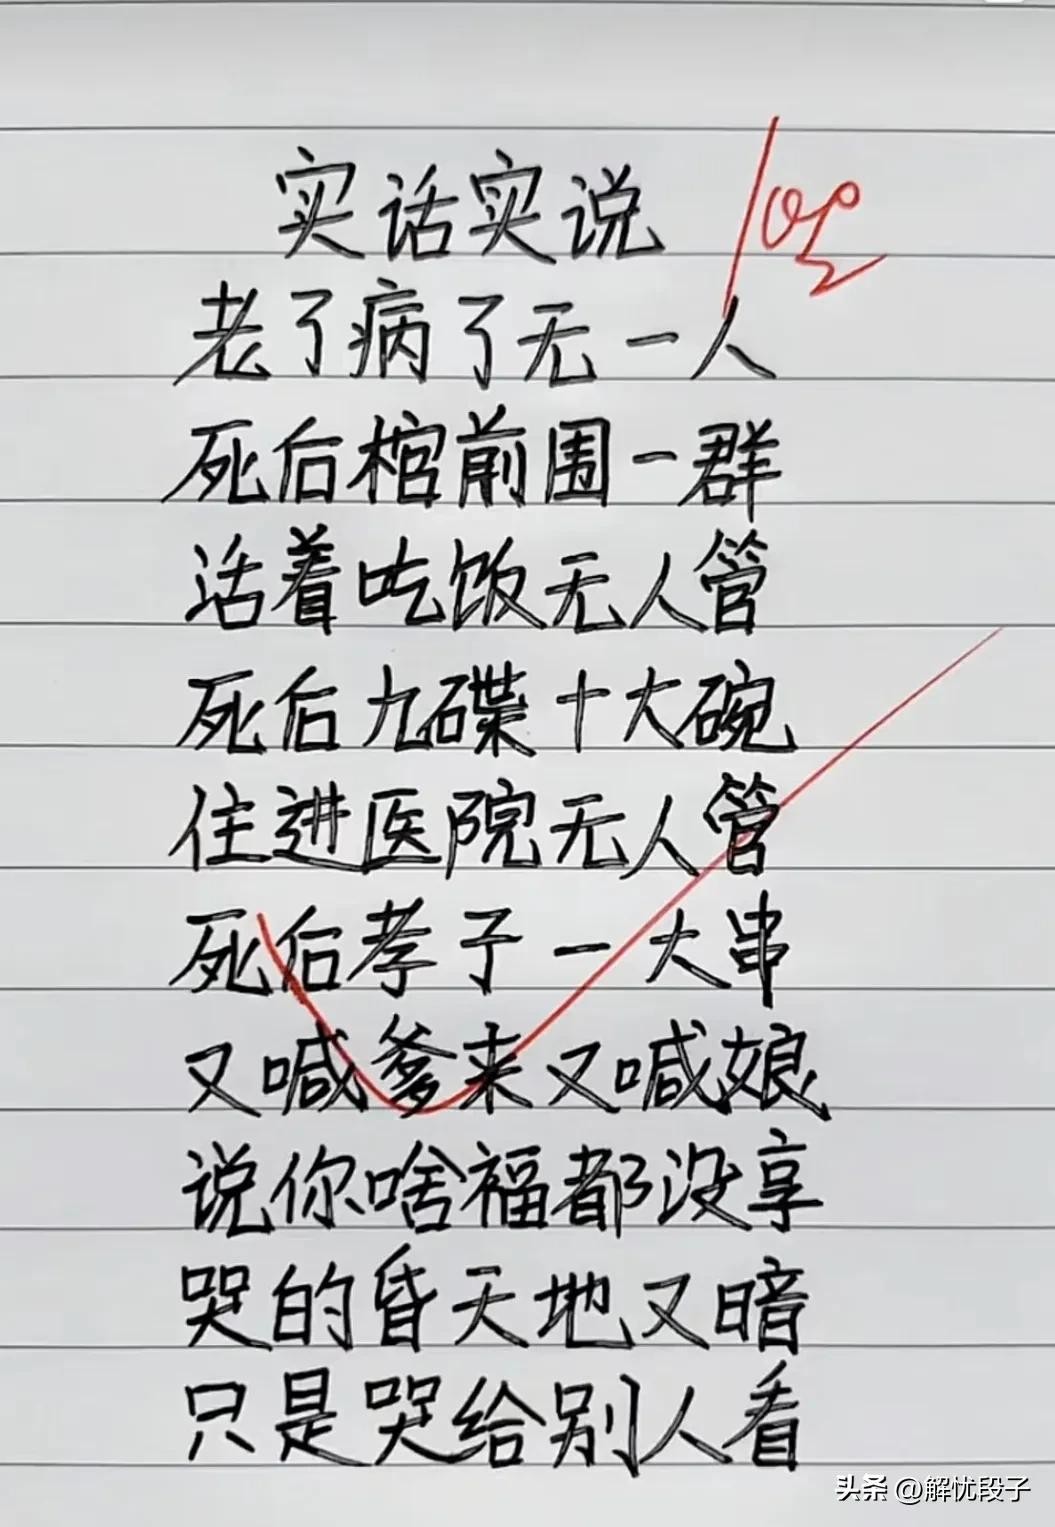 实话实说
老了病了无一人
死后棺前围一群
活着吃饭无人管
死后九碟十大碗
住进医院无人管
死后孝子一大串
又喊爹来又喊娘
说你啥福都没享
哭的昏天地又暗
只是哭给别人看
头条 @解忧段子